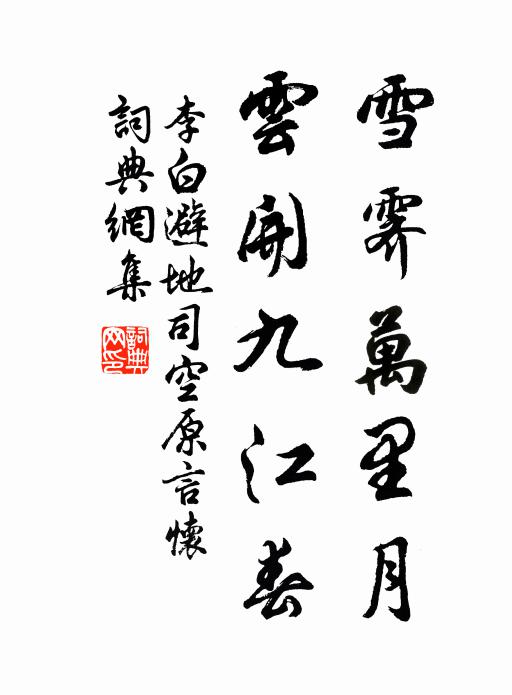 雪霽萬里月
雲開九江春
李白避地司空原言懷
詞典網集
詞典網印